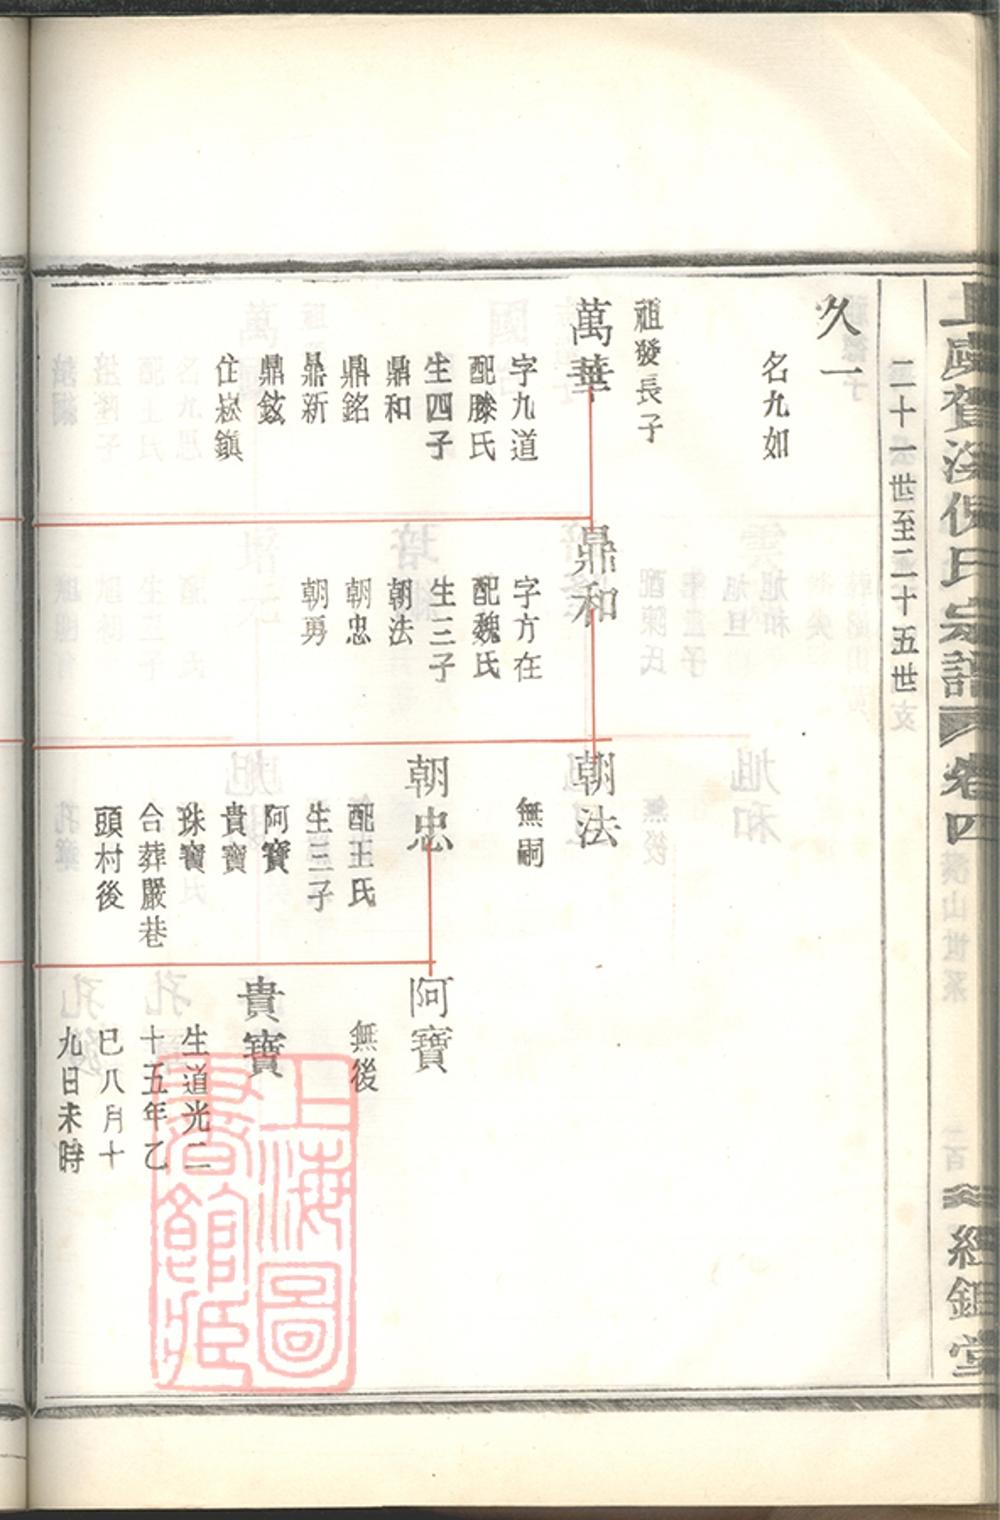 宗譜
卷四
經鉏堂
二十一世至二十五世
久一
名九如
祖發長子
萬華
字九道
配滕氏
生四子
鼎和
鼎銘
鼎新
鼎鉉
住崧鎮
鼎和
字方在
配魏氏
生三子
朝法
朝忠
朝勇
朝法
無嗣
朝忠
配王氏
生三子
阿寶
貴寶
珠寶
合葬嚴巷
頭村後
阿寶
無後
貴寶
生道光二
十五年乙
巳八月十
九日未時
上海圖
書館藏